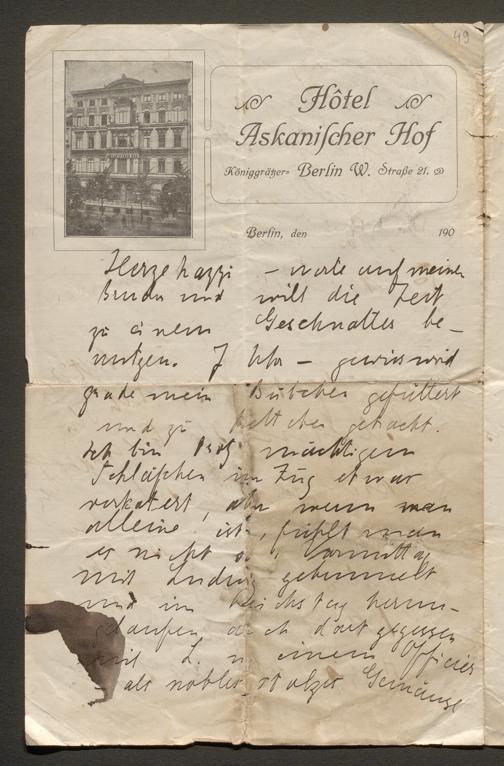 49
Hôtel
Askanischer Hof
Königgrätzer- Berlin W. Straße 21.
Berlin, den 190
Herzehazzi – warte auf meinen
Bruder und will die Zeit
zu einem Geschnatter be-
nutzen. 7 Uhr – gewiss wird
grade mein Bubchen gefüttert
und zu Bettchen gebracht.
Ich bin trotz mächtigem
Schläfchen im Zug etwas
verkatert, aber wenn man
alleine ist, fühlt man
es nicht so. Vormittag
mit Ludwig gebummelt
und im Reichstag herum-
gelaufen auch dort gegessen
mit L. u. einem Officier
als nobles stolzes